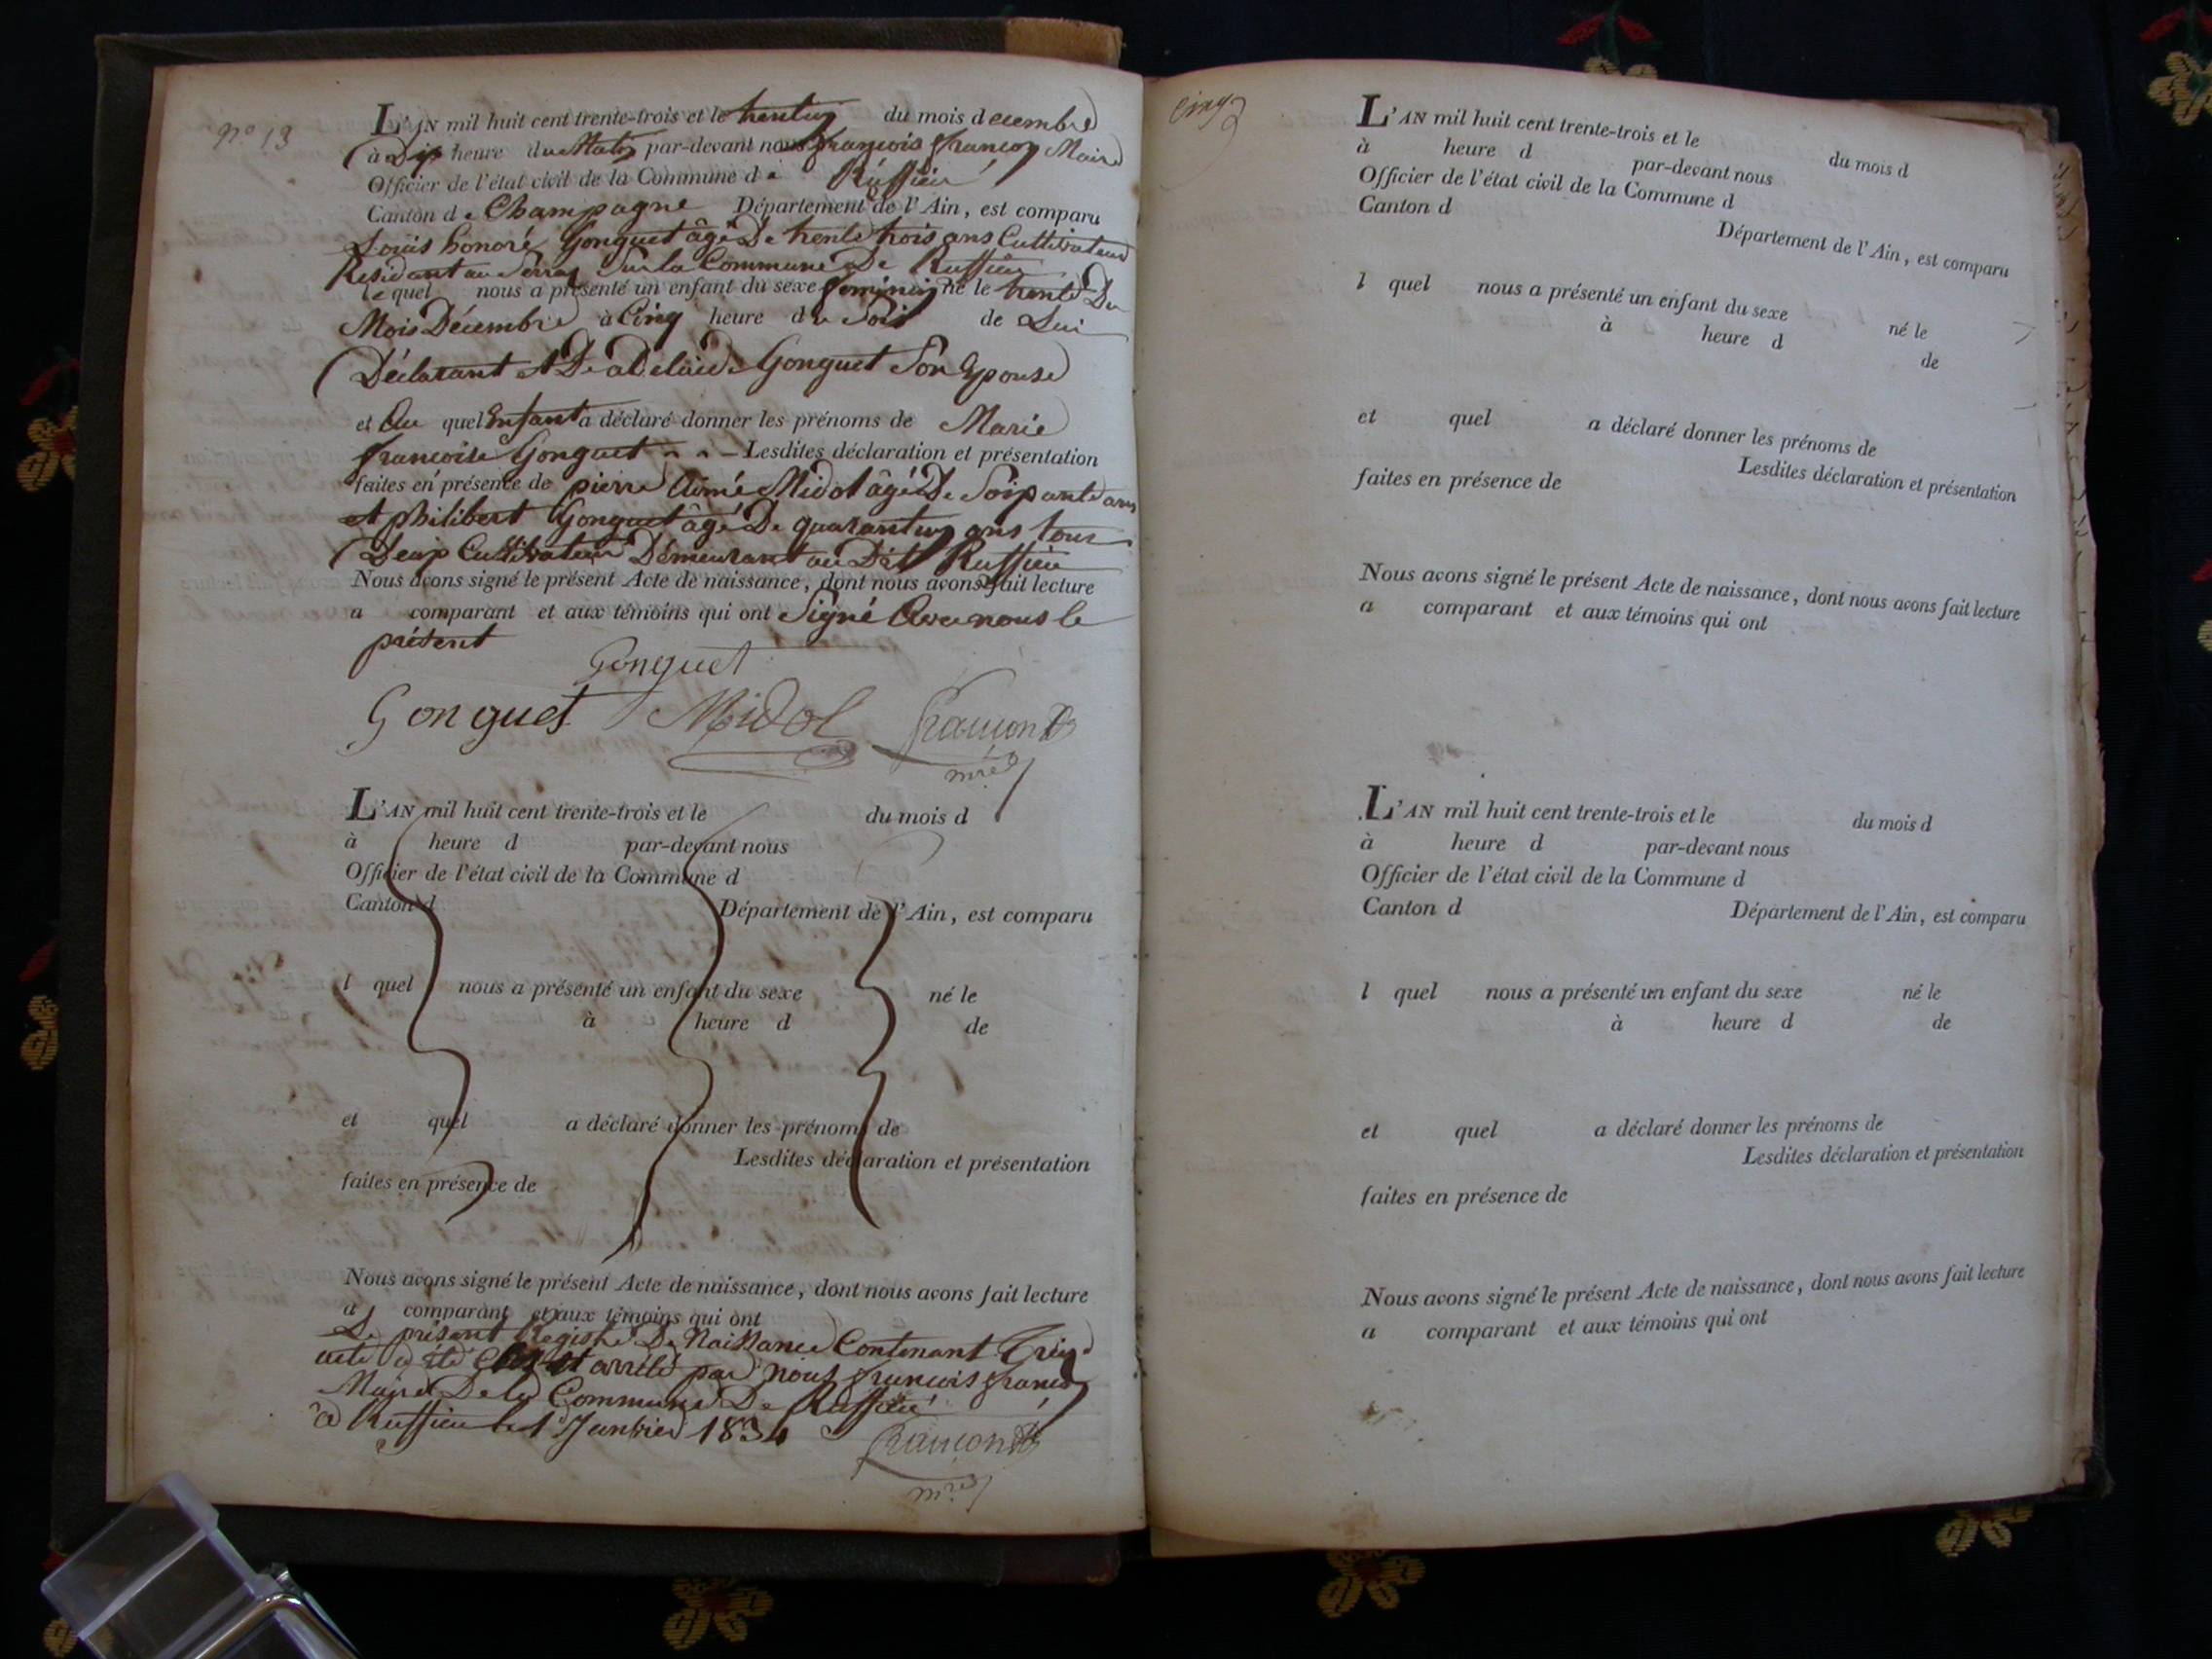 n° 13
L'AN mil huit cent trente-trois et le trentun du mois decembre
à Dix heure du Matin par-devant nous françois françon Maire
Officier de l'état civil de la Commune de Ruffieu
Canton de Champagne Département de l'Ain, est comparu
Louis honoré Gonguet âgé De trente trois ans Cultivateur
Residant au Serray Sur la Commune De Ruffieu
le quel nous a présenté un enfant du sexe feminin né le trente Du
Mois Décembre à Cinq heure du Soir de Lui
Déclarant et De adelaide Gonguet Son Epouse
et Au quel Enfant a déclaré donner les prénoms de Marie
francoise Gonguet - - - Lesdites déclaration et présentation
faites en présence de pierre Aimé Midol âgé De Soixante ans
et philibert Gonguet âgé De quarantun ans tous
Deux Cultivateur Demeurant au Dit Ruffieu
Nous avons signé le présent Acte de naissance, dont nous avons fait lecture
a comparant et aux témoins qui ont Signé Avec nous le
présent
Gonguet
Gonguet Midol françon
mre
L'AN mil huit cent trente-trois et le du mois d
à heure d par-devant nous
Officier de l'état civil de la Commune d
Canton d Département de l'Ain, est comparu
l quel nous a présenté un enfant du sexe né le
à heure d de
et quel a déclaré donner les prénoms de
Lesdites déclaration et présentation
faites en présence de
Nous avons signé le présent Acte de naissance, dont nous avons fait lecture
a comparant et aux témoins qui ont
Le présent Registre De Naissance Contenant Treize
acte a été Clos et arrêté par nous francois françon
Maire De la Commune De Ruffieu
a Ruffieu le 1er Janvier 1834
françon
mre
Cinq
L'AN mil huit cent trente-trois et le du mois d
à heure d par-devant nous
Officier de l'état civil de la Commune d
Canton d Département de l'Ain, est comparu
l quel nous a présenté un enfant du sexe né le
à heure d de
et quel a déclaré donner les prénoms de
Lesdites déclaration et présentation
faites en présence de
Nous avons signé le présent Acte de naissance, dont nous avons fait lecture
a comparant et aux témoins qui ont
L'AN mil huit cent trente-trois et le du mois d
à heure d par-devant nous
Officier de l'état civil de la Commune d
Canton d Département de l'Ain, est comparu
l quel nous a présenté un enfant du sexe né le
à heure d de
et quel a déclaré donner les prénoms de
Lesdites déclaration et présentation
faites en présence de
Nous avons signé le présent Acte de naissance, dont nous avons fait lecture
a comparant et aux témoins qui ont